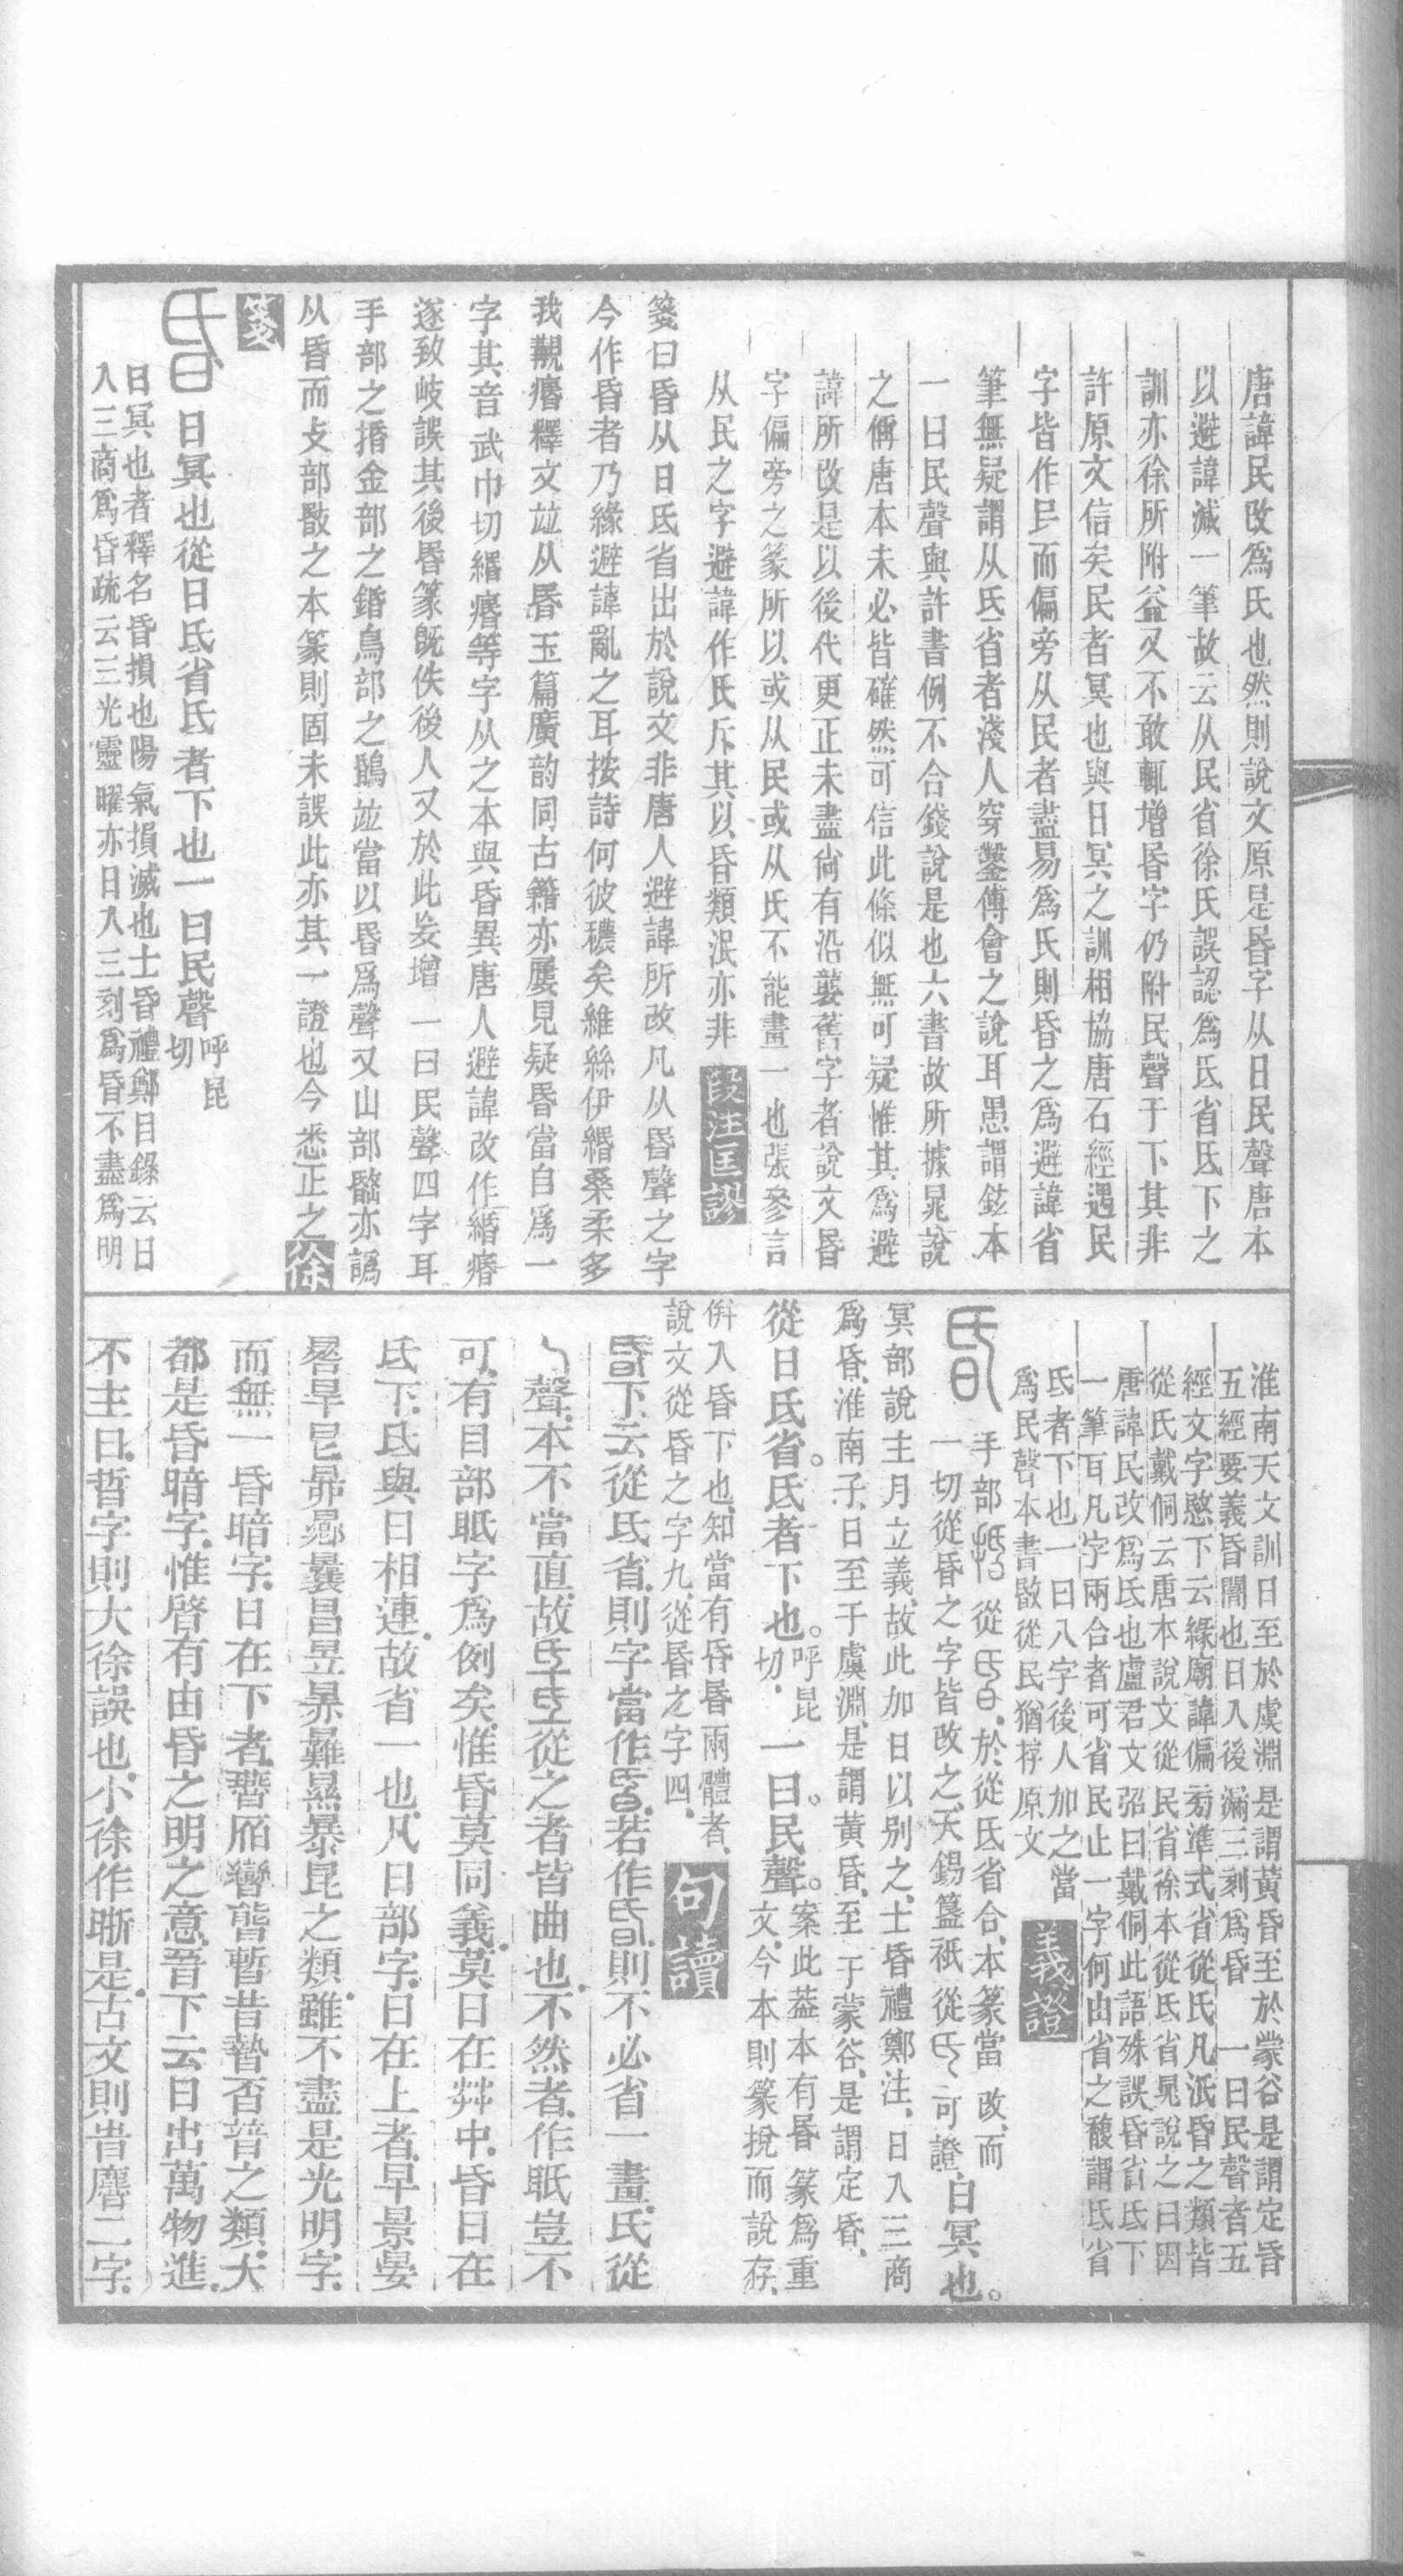 唐諱民改爲氏也然則說文原是昬字从日民聲唐本
以避諱減一筆故云从民省徐氏誤認爲氐省氐下之
訓亦徐所附益又不敢輒增昬字仍附民聲于下其非
許原文信矣民者冥也與日冥之訓相協唐石經遇民
字皆作𫞖而偏旁从民者盡易爲氏則昏之爲避諱省
筆無疑謂从氐省者淺人穿鑿傅會之說耳愚謂鉉本
一曰民聲與許書例不合錢說是也六書故所據晁說
之偁唐本未必皆確然可信此條似無可疑惟其爲避
諱所改是以後代更正未盡尙有沿襲舊字者說文昬
字偏旁之篆所以或从民或从氏不能畫一也張參言
从民之字避諱作氏斥其以昏類泯亦非
段注匡謬
箋曰昏从日氐省出於說文非唐人避諱所改凡从昬聲之字
今作昏者乃緣避諱亂之耳按詩何彼穠矣維絲伊緡桑柔多
我覯痻釋文竝从昬玉篇廣韵同古籍亦屢見疑昬當自爲一
字其音武巾切緡痻等字从之本與昏異唐人避諱改作緍痻
遂致岐誤其後昬篆既佚後人又於此妄增一曰民聲四字耳
手部之㨉金部之鍲鳥部之鶥竝當以昬爲聲又山部㟭亦譌
从昏而攴部敃之本篆則固未誤此亦其一證也今悉正之
徐
箋
日冥也從日氐省氐者下也一曰民聲呼昆切
日冥也者釋名昏損也陽氣損滅也士昏禮鄭目錄云日
入三商爲昏疏云三光靈曜亦日入三刻爲昏不盡爲明
淮南天文訓日至於虞淵是謂黃昏至於蒙谷是謂定昏
五經要義昏闇也日入後漏三刻爲昏 一曰民聲者五
經文字愍下云緣廟諱偏旁準式省從氏凡泯昏之類皆
從氏戴侗云唐本說文從民省徐本從氐省晁說之曰因
唐諱民改爲氏也盧君文弨曰戴侗此語殊誤昏省氐下
一筆耳凡字兩合者可省民止一字何由省之馥謂氐省
氐者下也一曰八字後人加之當
爲民聲本書敃從民猶存原文
義證
手部㨉從昬於從氐省合本篆當改而
一切從昏之字皆改之天錫簋祇從氏可證
日冥也。
冥部說主月立義故此加日以別之士昏禮鄭注日入三商
爲昏淮南子日至于虞淵是謂黃昏至于蒙谷是謂定昏
從日氐省。氐者下也。呼昆切一曰民聲。案此葢本有昬篆爲重文今本則篆挩而說存
倂入昏下也知當有昏昬兩體者
說文從昏之字九從昬之字四
句讀
昏下云從氐省則字當作昏若作昏則不必省一畫氏從
乀聲本不當直故氏氐從之者皆曲也不然者作眂豈不
可有目部眂字爲例矣惟昏莫同義莫日在茻中昏日在
氐下氐與日相連故省一也凡日部字日在上者早景晏
晷旱㫐昴曏曩昌昱㬥㬮㬎暴昆之類雖不盡是光明字
而無一昏暗字日在下者暬𣅔㬫暜暫昔暬否暜之類大
都是昏暗字惟啓有由昏之明之意晉下云日出萬物進
不主日晢字則大徐誤也小徐作晣是古文則旹㬆二字